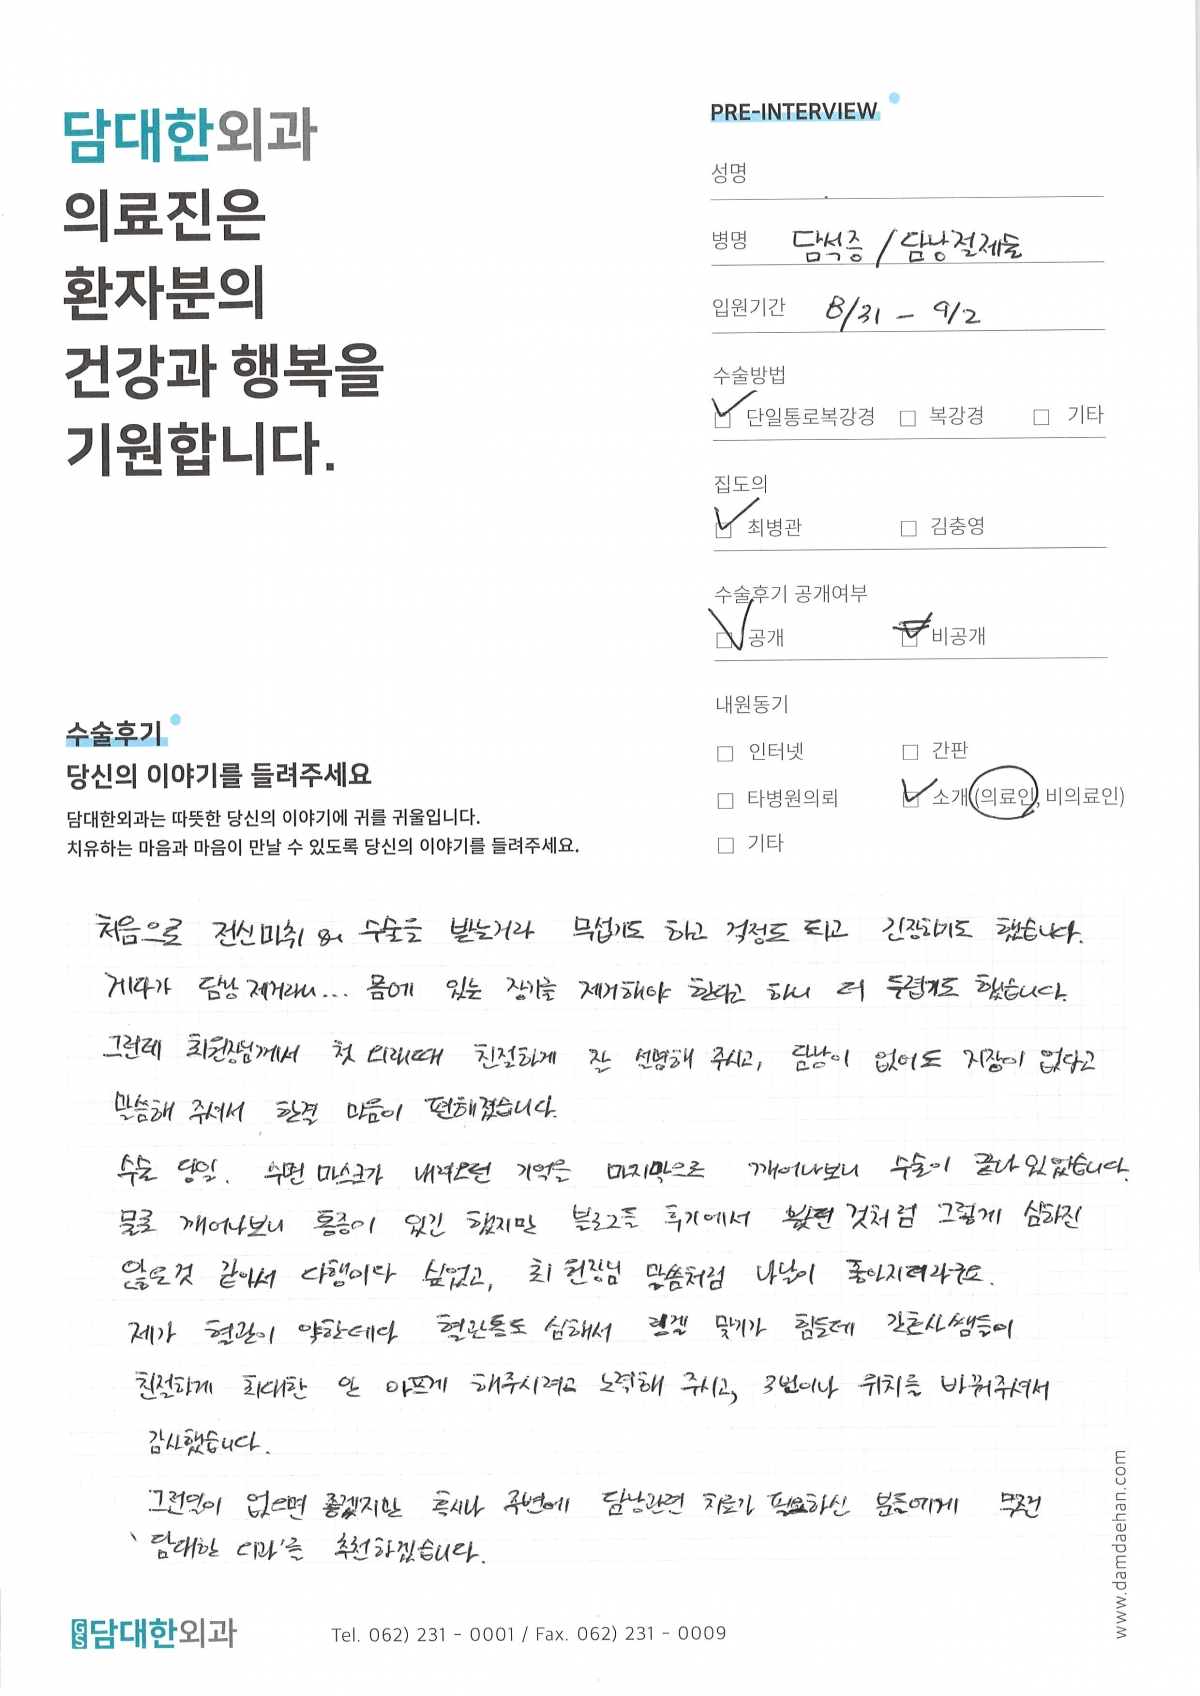 담대한외과
의료진은
환자분의
건강과 행복을
기원합니다.
PRE-INTERVIEW
성명
병명 담석증 / 담낭절제술
입원기간 8/31 - 9/2
수술방법
단일통로복강경 복강경 기타
집도의
최병관 김충영
수술후기 공개여부
공개 비공개
내원동기
인터넷 간판
타병원의뢰 소개 (의료인, 비의료인)
기타
수술후기
당신의 이야기를 들려주세요
담대한외과는 따뜻한 당신의 이야기에 귀를 귀울입니다.
치유하는 마음과 마음이 만날 수 있도록 당신의 이야기를 들려주세요.
처음으로 전신마취 & 수술을 받는거라 무섭기도 하고 걱정도 되고 긴장하기도 했습니다.
게다가 담낭 제거라니... 몸에 있는 장기를 제거해야 한다고 하니 더 두렵기도 했습니다.
그런데 최원장님께서 첫 외래때 친절하게 잘 설명해 주시고, 담낭이 없어도 지장이 없다고
말씀해 주셔서 한결 마음이 편해졌습니다.
수술 당일. 수면 마스크가 내려오던 기억을 마지막으로 깨어나보니 수술이 끝나있었습니다.
물론 깨어나보니 통증이 있긴 했지만 블로그들 후기에서 봤던 것처럼 그렇게 심하진
않은것 같아서 다행이다 싶었고, 최 원장님 말씀처럼 나날이 좋아지더라구요.
제가 혈관이 약한데다 혈관통도 심해서 링겔 맞기가 힘든데 간호사쌤들이
친절하게 최대한 안 아프게 해주시려고 노력해 주시고, 3번이나 위치를 바꿔주셔서
감사했습니다.
그런일이 없으면 좋겠지만 혹시나 주변에 담낭관련 치료가 필요하신 분들에게 무조건
'담대한 외과'를 추천하겠습니다.
GS담대한외과
Tel. 062) 231 - 0001 / Fax. 062) 231 - 0009
www.damdaehan.com